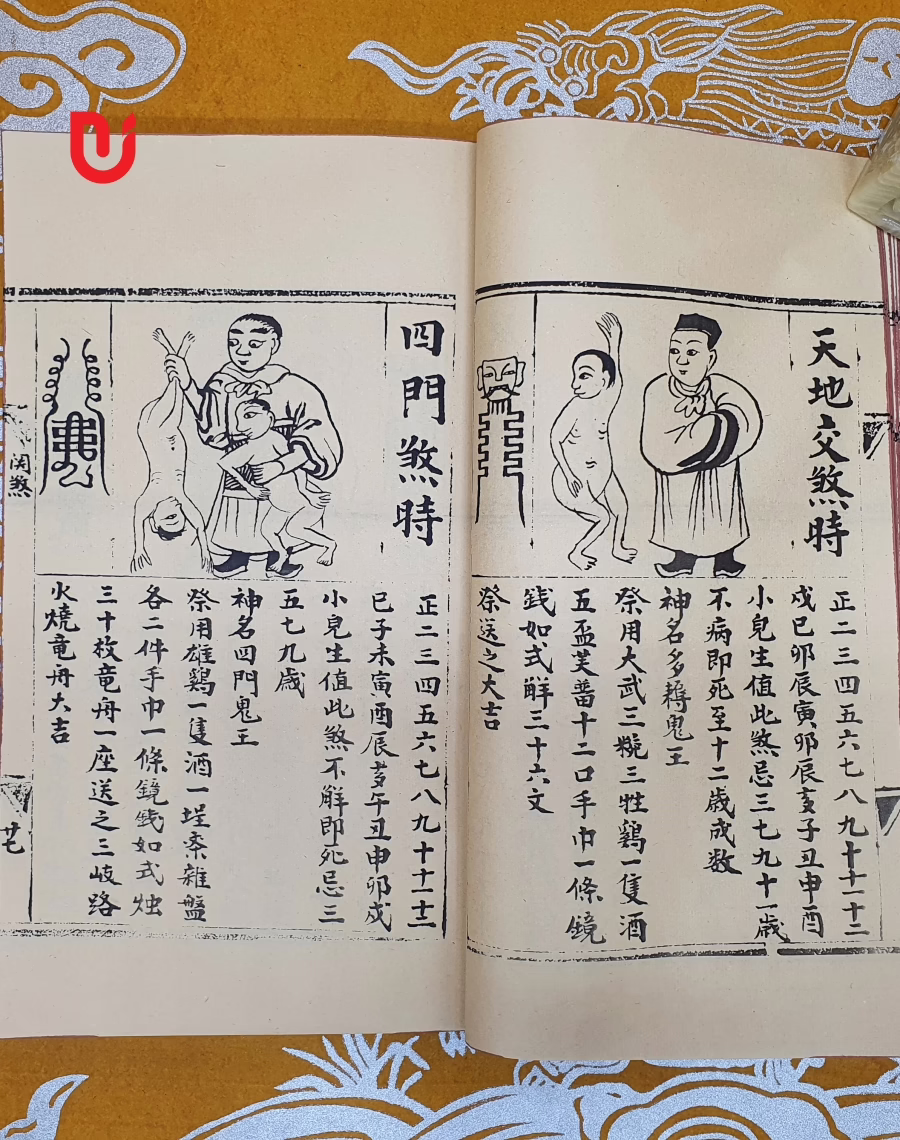 天地交煞時
正二三四五六七八九十十一十二
戍巳卯辰寅卯辰亥子丑申酉
小兒生值此煞忌三七九十一歲
不病即死至十二歲成數
神名多鬼王
祭用大武三碗三牲鷄一隻酒
五盃芙蕾十二口手巾一條鏡
銭如式解三十六文
祭送之大吉
四門煞時
正二三四五六七八九十十一十二
巳子未寅酉辰亥午丑申卯戍
小兒生值此煞不解即死忌三
五七九歲
神名四門鬼王
祭用雄鷄一隻酒一埕桼雜盤
各二件手巾一條鏡銭如式烛
三十枚竜舟一座送之三岐路
火燒竜舟大吉
関煞
廿七